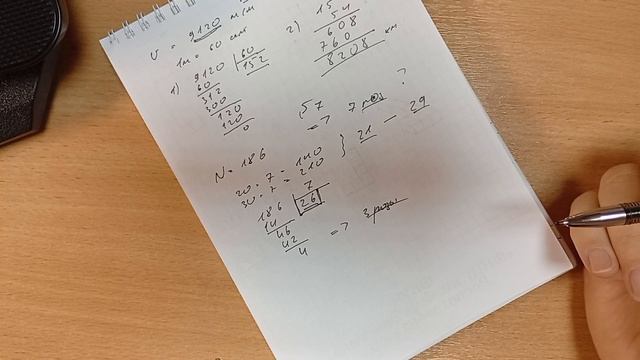 v = 9120 м/мин
1м = 60 сек
1) 9120 | 60
60 | 152
312
300
120
120
0
2) 15
54
608
760
8208 км
57
=> 7 раз ?
N = 186
20 · 7 = 140
30 · 7 = 210 } 21 — 29
186 | 7
14 | 26
46
42
4
=> 3 разы